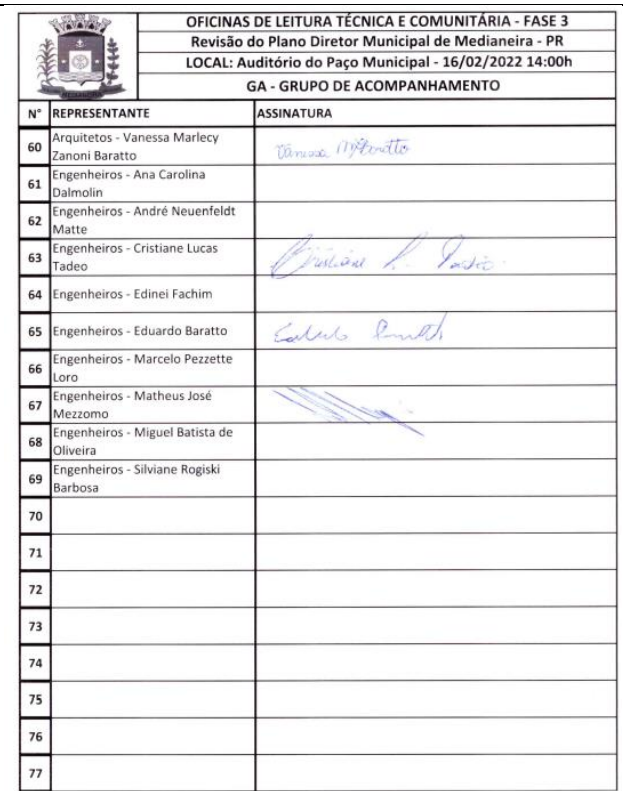 OFICINAS DE LEITURA TÉCNICA E COMUNITÁRIA - FASE 3
Revisão do Plano Diretor Municipal de Medianeira - PR
LOCAL: Auditório do Paço Municipal - 16/02/2022 14:00h
GA - GRUPO DE ACOMPANHAMENTO
N° REPRESENTANTE ASSINATURA
60 Arquitetos - Vanessa Marlecy
Zanoni Baratto
Vanessa M Baratto
61 Engenheiros - Ana Carolina
Dalmolin
62 Engenheiros - André Neuenfeldt
Matte
63 Engenheiros - Cristiane Lucas
Tadeo
Cristiane L. Tadeo
64 Engenheiros - Edinei Fachim
65 Engenheiros - Eduardo Baratto
66 Engenheiros - Marcelo Pezzette
Loro
67 Engenheiros - Matheus José
Mezzomo
68 Engenheiros - Miguel Batista de
Oliveira
69 Engenheiros - Silviane Rogiski
Barbosa
70
71
72
73
74
75
76
77